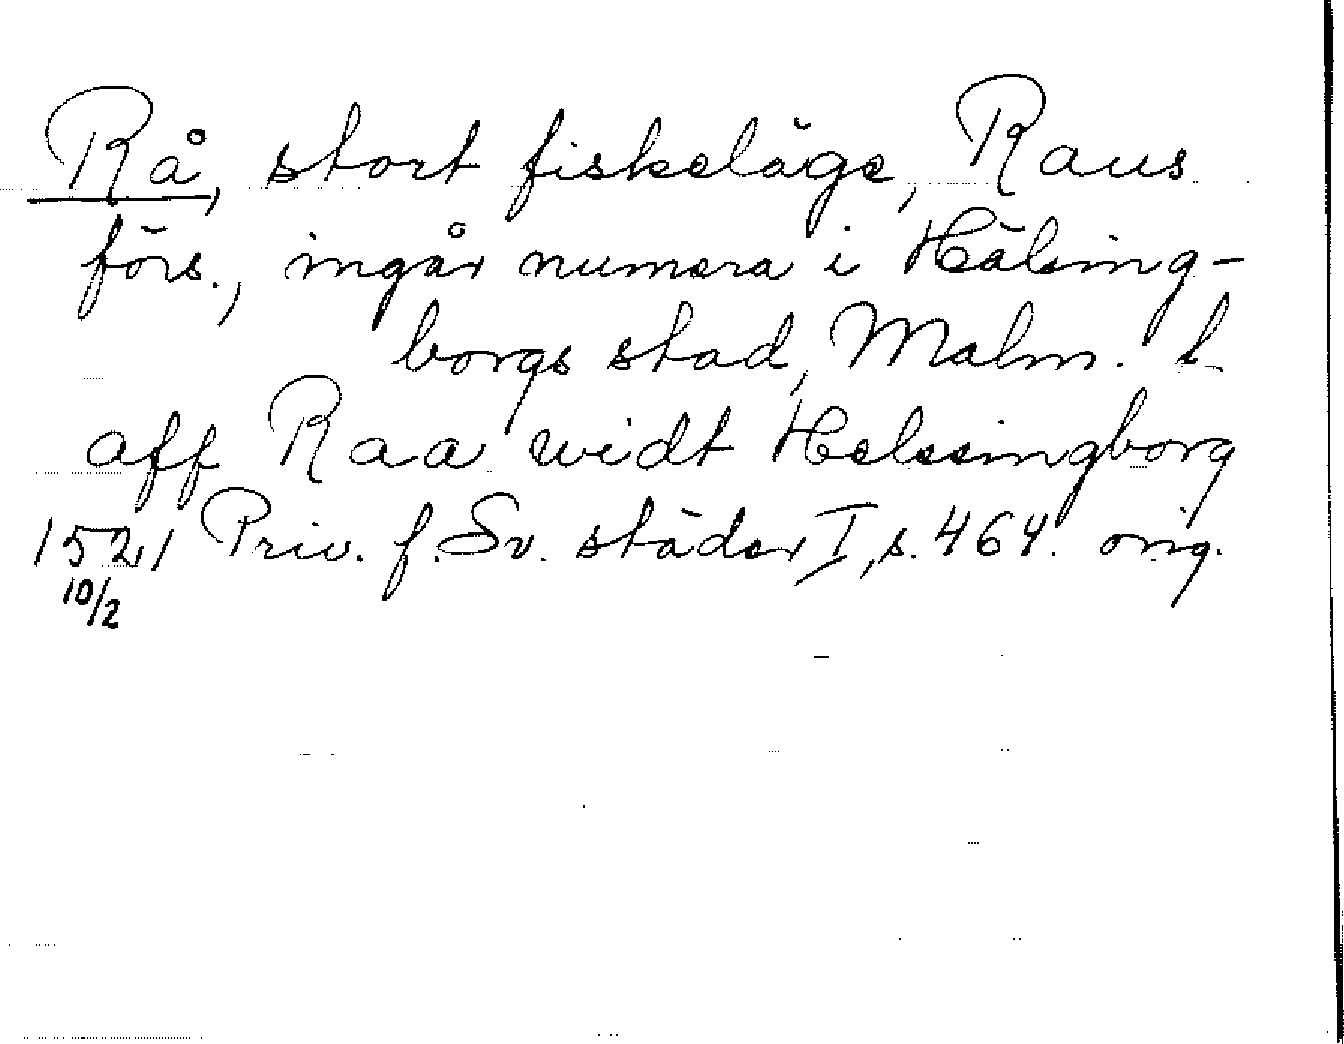 Rå, stort fiskeläge, Raus
förs., ingår numera i Hälsing-
borgs stad, Malm. l
aff Raa widt Helssingborg
1521 Priv. f. Sv. städer I, s. 464. orig.
10/2